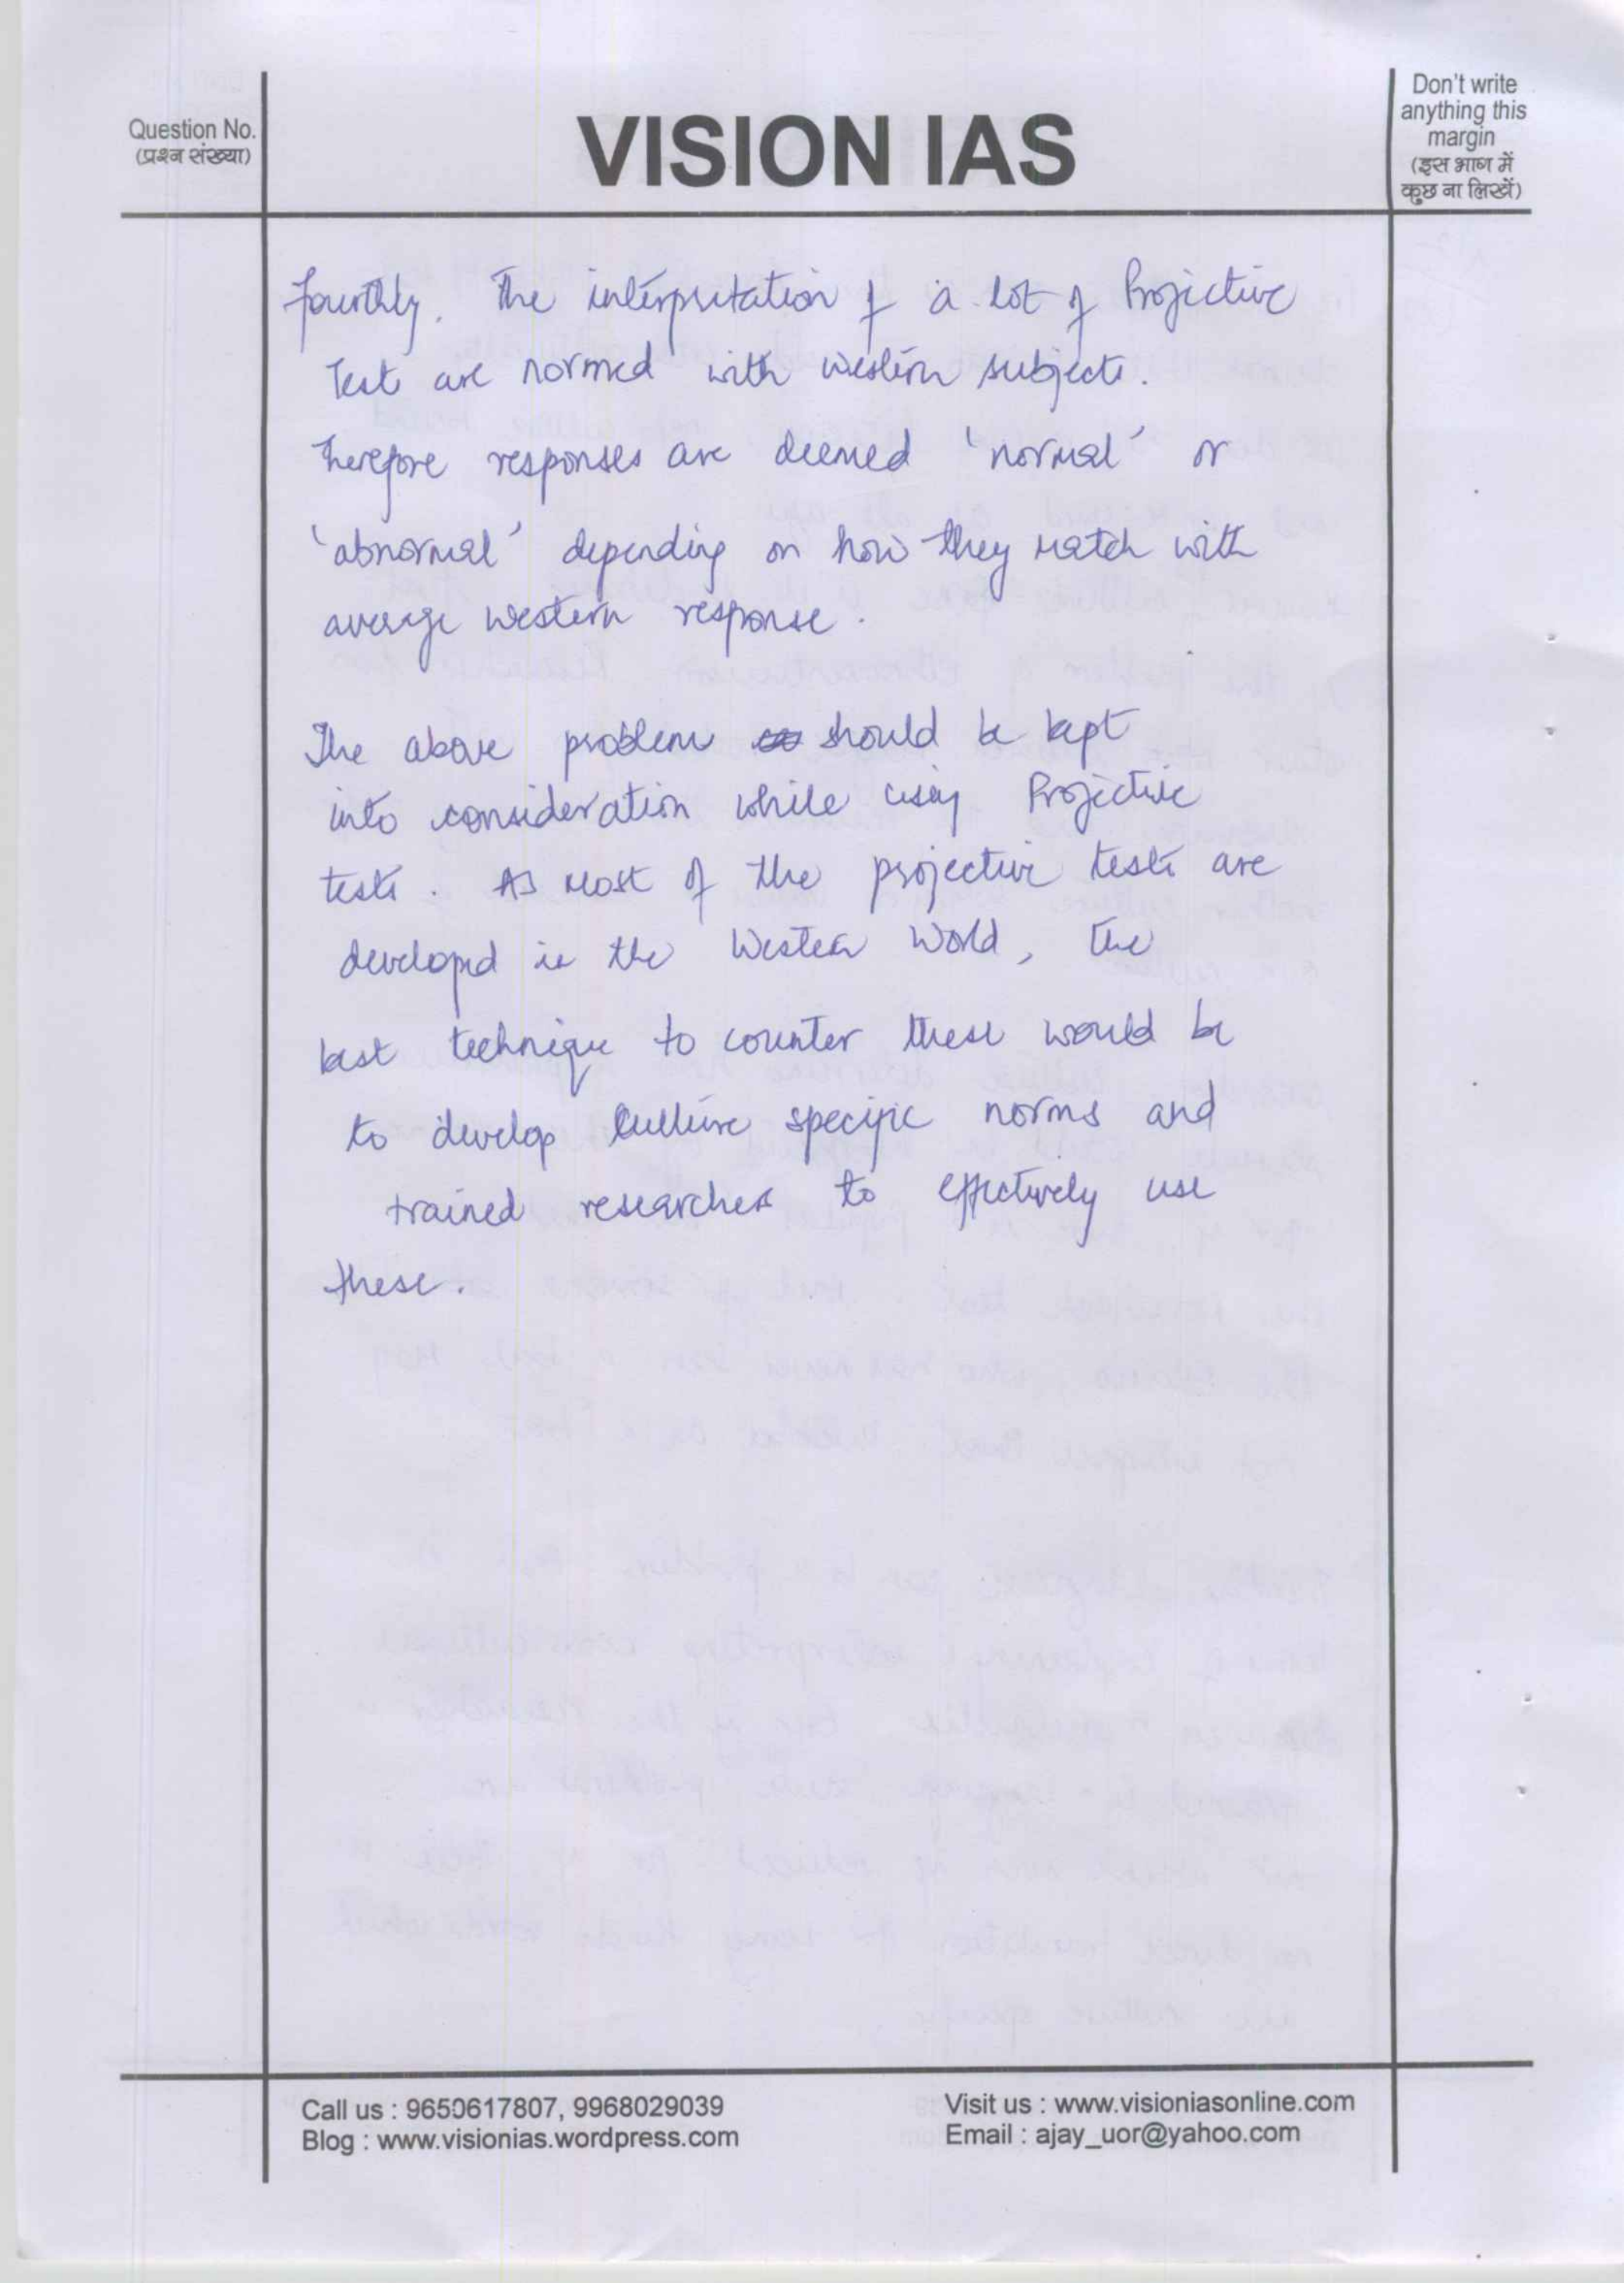 Question No.
(प्रश्न संख्या)
VISION IAS
Don't write
anything this
margin
(इस भाग में
कुछ ना लिखें)
fourthly. The interpretation of a lot of Projective
Test are normed with western subjects.
Therefore responses are deemed 'normal' or
'abnormal' depending on how they match with
average western response.
The above problem should be kept
into consideration while using Projective
tests. As most of the projective tests are
developed in the Western World, the
best technique to counter these would be
to develop culture specific norms and
trained researcher to effectively use
these.
Call us : 9650617807, 9968029039
Blog : www.visionias.wordpress.com
Visit us : www.visioniasonline.com
Email : ajay_uor@yahoo.com